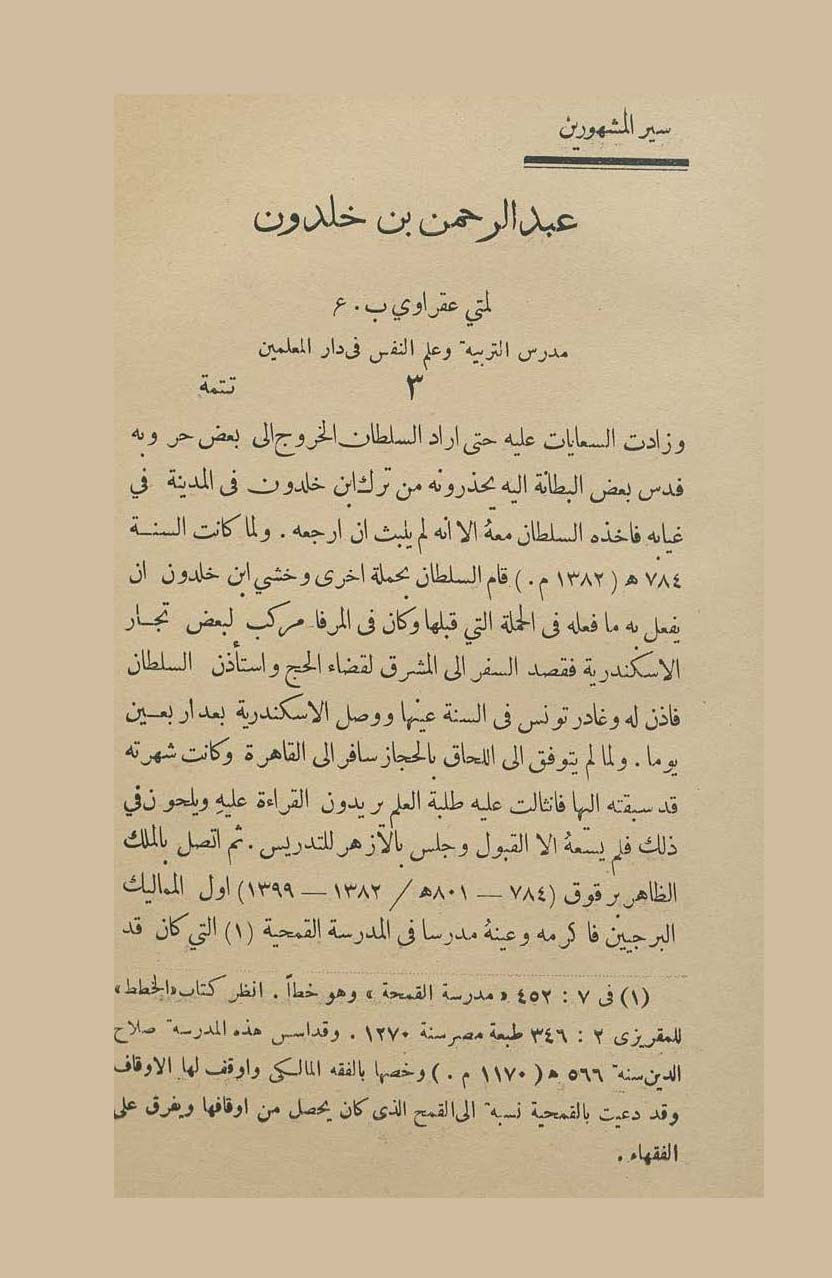 سير المشهورين
عبدالرحمن بن خلدون
لمتي عقراوي ب . ع
مدرس التربية وعلم النفس فى دار المعلمين
٣ تتمة
وزادت السعايات عليه حتى اراد السلطان الخروج الى بعض حروبه
فدس بعض البطانة اليه يحذرونه من ترك ابن خلدون فى المدينة في
غيابه فاخذه السلطان معهُ الا انه لم يلبث ان ارجعه . ولما كانت السنة
٧٨٤ ه ( ١٣٨٢ م . ) قام السلطان بحملة اخرى وخشي ابن خلدون ان
يفعل به ما فعله فى الحملة التي قبلها وكان فى المرفا مركب لبعض تجار
الاسكندرية فقصد السفر الى المشرق لقضاء الحج واستأذن السلطان
فاذن له وغادر تونس فى السنة عينها ووصل الاسكندرية بعد اربعين
يوما . ولما لم يتوفق الى اللحاق بالحجاز سافر الى القاهرة وكانت شهرته
قد سبقته اليها فانثالت عليه طلبة العلم يريدون القراءة عليهِ ويلحون في
ذلك فلم يسعهُ الا القبول وجلس بالازهر للتدريس . ثم اتصل بالملك
الظاهر برقوق (٧٨٤ — ٨٠١ه / ١٣٨٢ — ١٣٩٩) اول المماليك
البرجيين فاكرمه وعينهُ مدرسا فى المدرسة القمحية (١) التي كان قد
(١) فى ٧ : ٤٥٢ « مدرسة القمحة » وهو خطأ . انظر كتاب «الخطط»
للمقريزى ٢ : ٣٤٦ طبعة مصر سنة ١٢٧٠ . وقد اسس هذه المدرسة صلاح
الدين سنة ٥٦٦ ه ( ١١٧٠ م . ) وخصها بالفقه المالكى واوقف لها الاوقاف
وقد دعيت بالقمحية نسبة الى القمح الذى كان يحصل من اوقافها ويفرق على
الفقهاء .